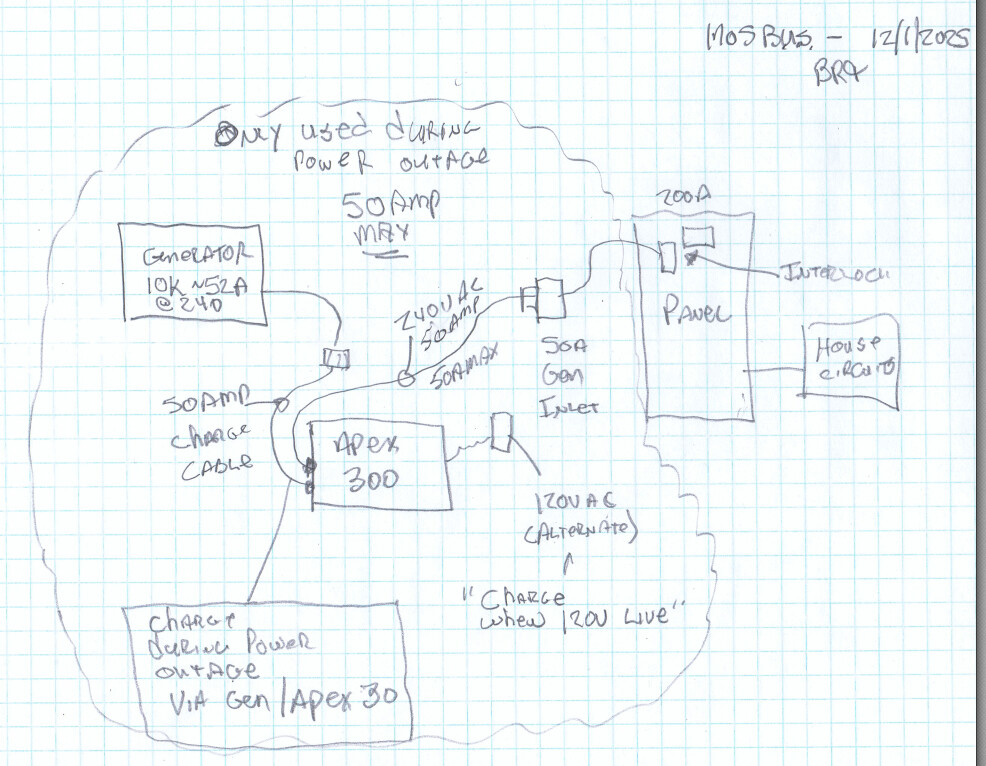 MOSBUS. - 12/1/2025
BRQ
ONLY used DURING
POWER OUTAGE
50AMP
MAX
GENERATOR
10K ~52A
@ 240
240VAC
50AMP
50AMAX
50AMP
CHARGE
CABLE
APEX
300
50A
Gen
INLET
200A
INTERLOCK
PANEL
HOUSE
CIRCUITS
120VAC
(ALTERNATE)
"CHARGE
WHEN 120V LIVE"
CHARGE
DURING POWER
OUTAGE
VIA Gen/APEX 30